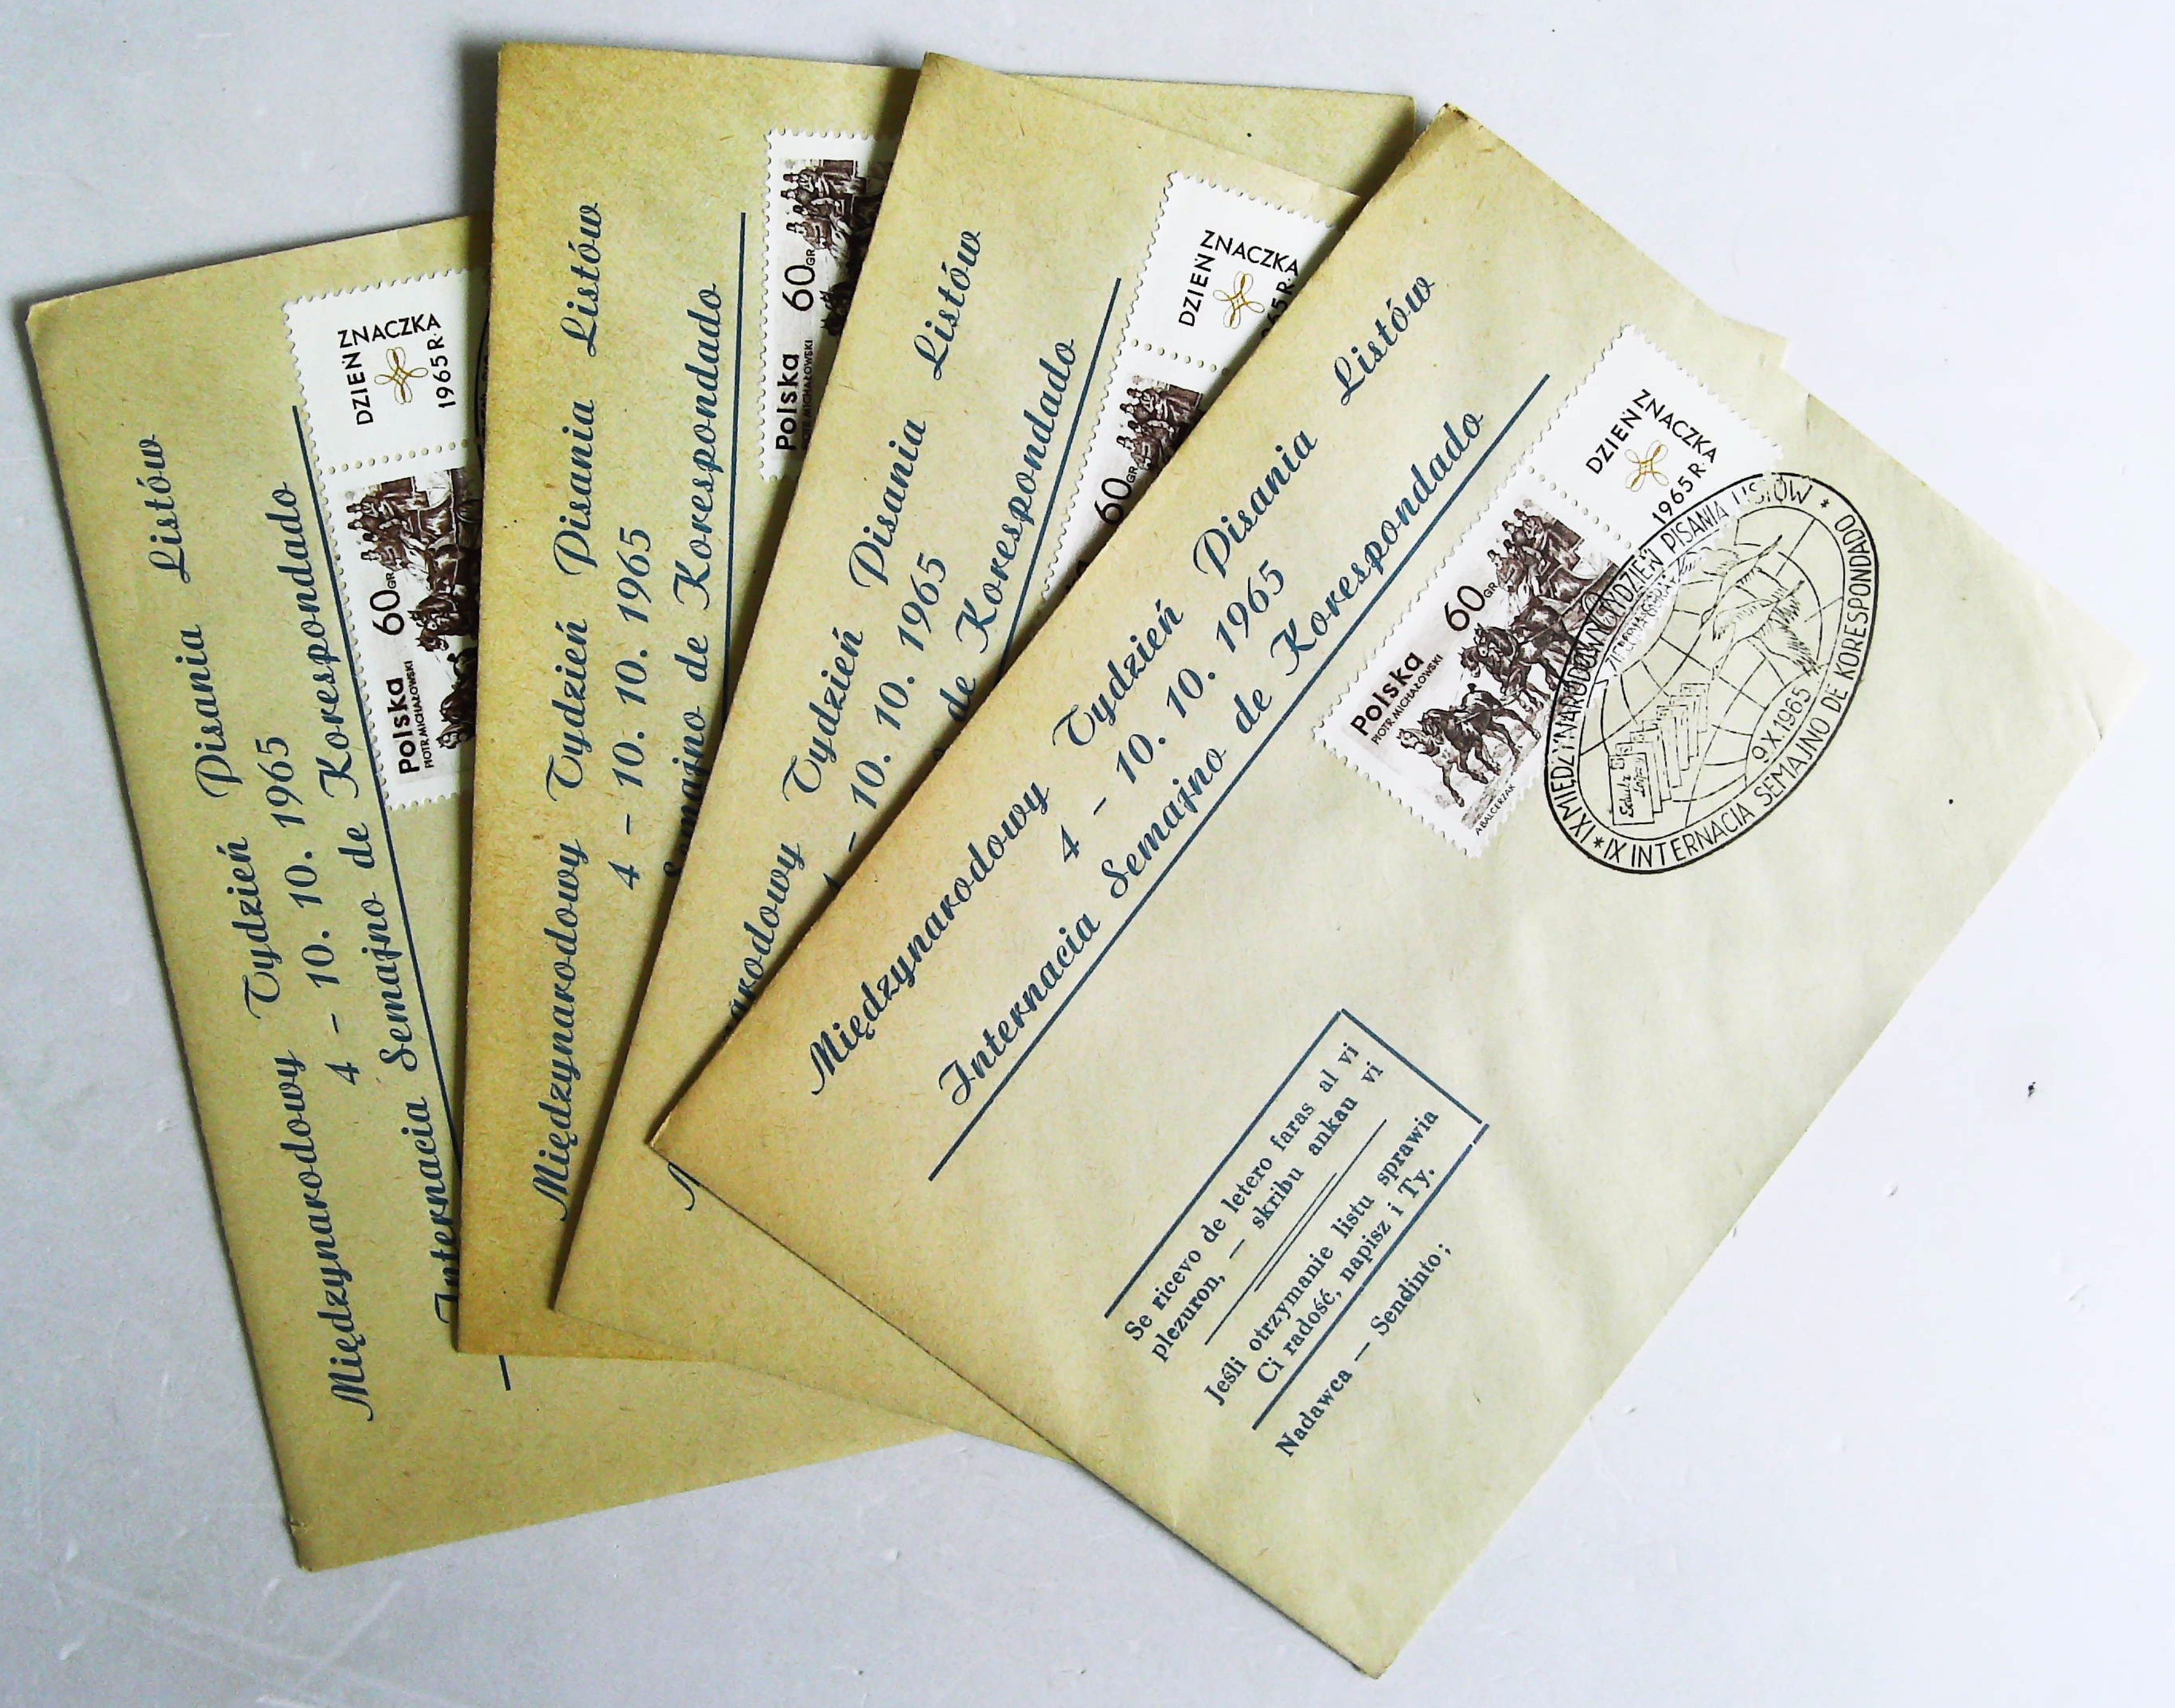 Międzynarodowy Tydzień Pisania Listów
4 – 10. 10. 1965
Internacia Semajno de Korespondado
DZIEŃ ZNACZKA
1965 R.
60 GR
Polska
PIOTR MICHAŁOWSKI
Międzynarodowy Tydzień Pisania Listów
4 – 10. 10. 1965
Semajno de Korespondado
60 GR
Polska
MICHAŁOWSKI
Tydzień Pisania Listów
10. 10. 1965
de Korespondado
DZIEŃ ZNACZKA
60 GR
Międzynarodowy Tydzień Pisania Listów
4 – 10. 10. 1965
Internacia Semajno de Korespondado
DZIEŃ ZNACZKA
1965 R.
60 GR
Polska
PIOTR MICHAŁOWSKI
A. BALCERZAK
IX MIĘDZYNARODOWY TYDZIEŃ PISANIA LISTÓW
9.X.1965
* IX INTERNACIA SEMAJNO DE KORESPONDADO *
Se ricevo de letero faras al vi
plezuron, — skribu ankau vi
Jeśli otrzymanie listu sprawia
Ci radość, napisz i Ty.
Nadawca — Sendinto;